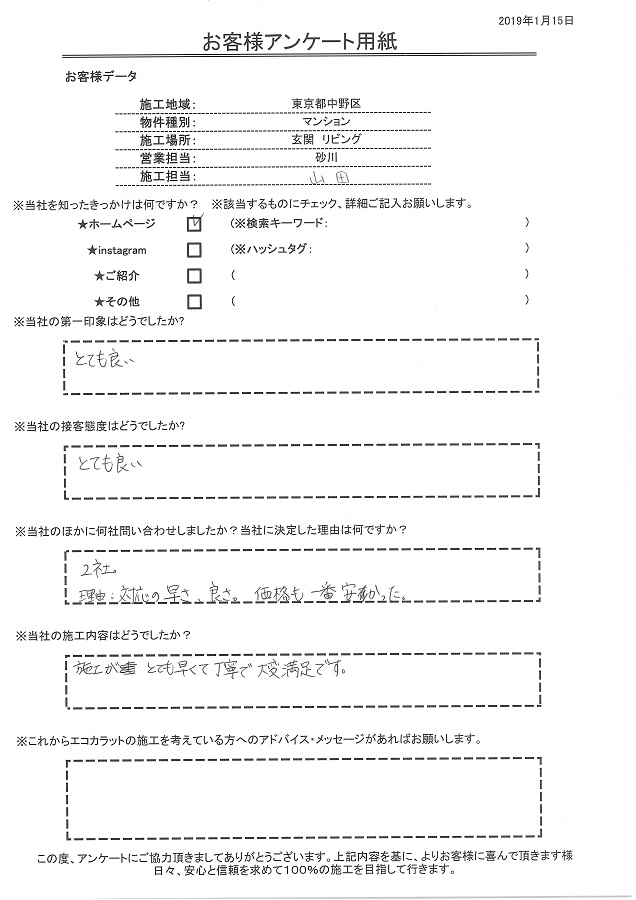 2019年1月15日
お客様アンケート用紙
お客様データ
施工地域： 東京都中野区
物件種別： マンション
施工場所： 玄関 リビング
営業担当： 砂川
施工担当： 山田
※当社を知ったきっかけは何ですか？ ※該当するものにチェック、詳細ご記入お願いします。
★ホームページ (※検索キーワード： )
★instagram (※ハッシュタグ： )
★ご紹介 ( )
★その他 ( )
※当社の第一印象はどうでしたか？
とても良い
※当社の接客態度はどうでしたか？
とても良い
※当社のほかに何社問い合わせしましたか？当社に決定した理由は何ですか？
2社。
理由：対応の早さ、良さ。 価格も一番安かった。
※当社の施工内容はどうでしたか？
施工が とても早くて丁寧で大変満足です。
※これからエコカラットの施工を考えている方へのアドバイス・メッセージがあればお願いします。
この度、アンケートにご協力頂きましてありがとうございます。上記内容を基に、よりお客様に喜んで頂きます様
日々、安心と信頼を求めて100％の施工を目指して行きます。